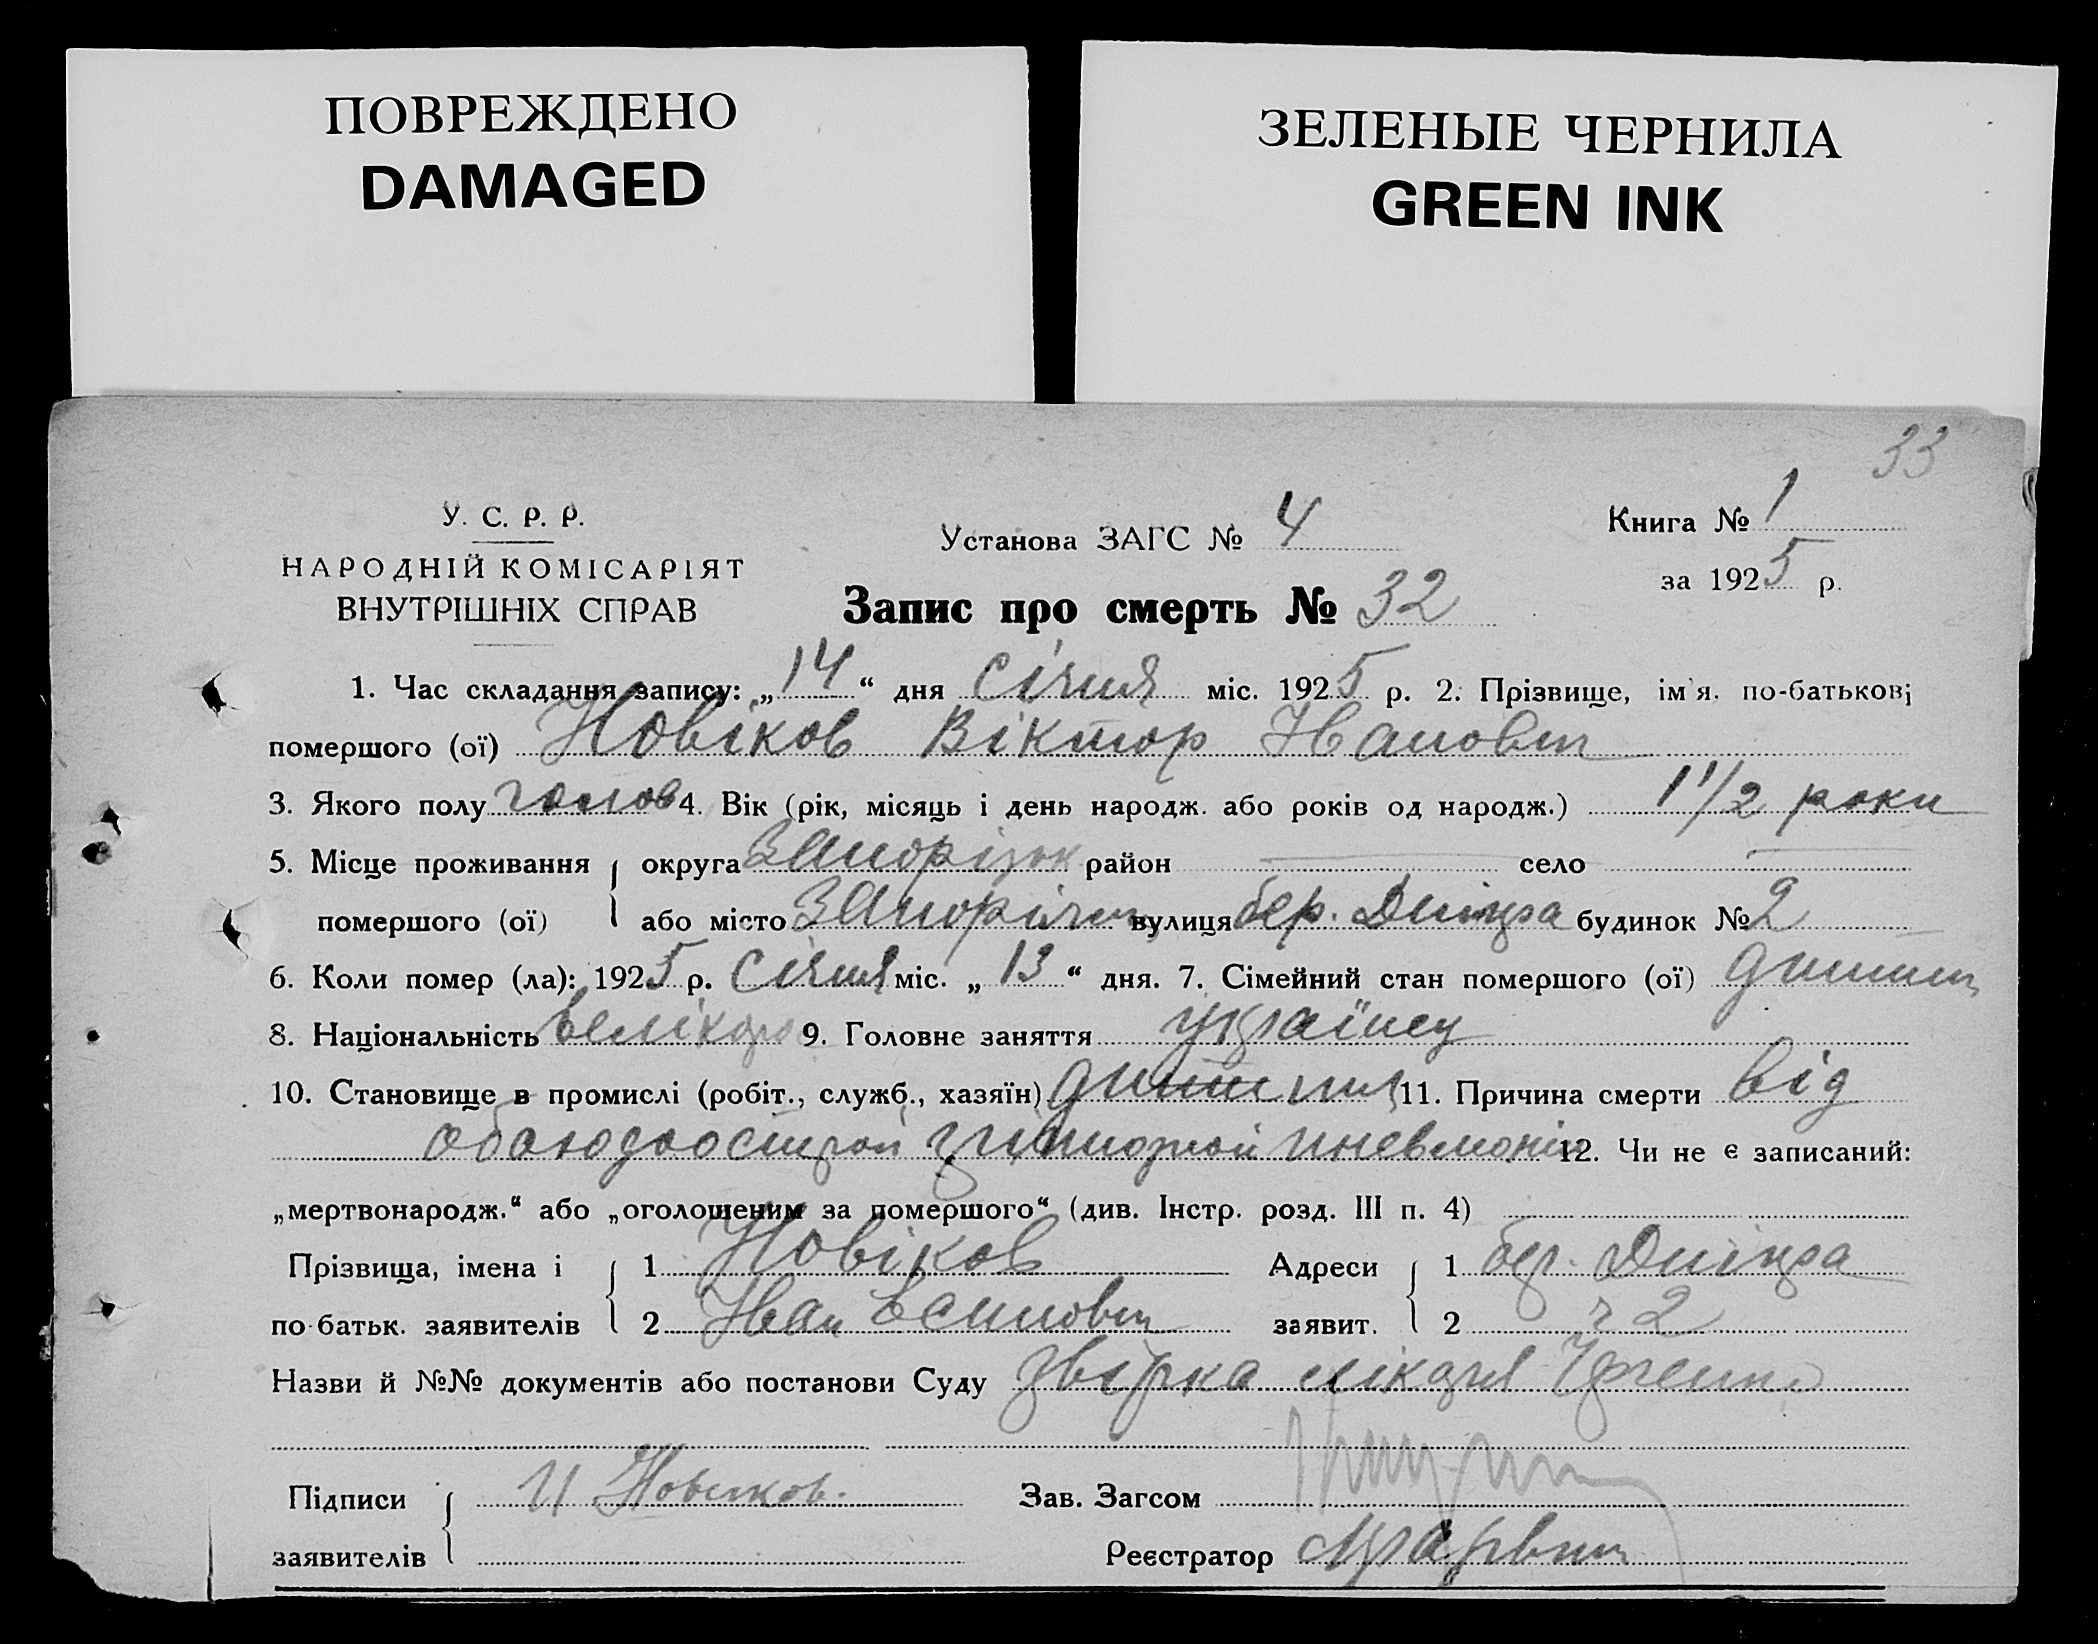 ПОВРЕЖДЕНО
DAMAGED
ЗЕЛЕНЫЕ ЧЕРНИЛА
GREEN INK
33
У. С. Р. Р.
НАРОДНІЙ КОМІСАРІЯТ
ВНУТРІШНІХ СПРАВ
Установа ЗАГС № 4
Книга № 1
за 1925 р.
Запис про смерть № 32
1. Час складання запису: „14“ дня січня міс. 1925 р. 2. Прізвище, ім'я. по-батькові
помершого (ої) Новіков Віктор Іванович
3. Якого полу 4. Вік (рік, місяць і день народж. або років од народж.) 1 1/2 роки
5. Місце проживання округа Запорізьк район — село —
помершого (ої) або місто Запоріжж вулиця бер. Дніпра будинок № 2
6. Коли помер (ла): 1925 р. Січня міс. „13“ дня. 7. Сімейний стан помершого (ої) дитина
8. Національність великор 9. Головне заняття
10. Становище в промислі (робіт., служб., хазяїн) 11. Причина смерти від
пневмонії 12. Чи не є записаний:
„мертвонародж.“ або „оголошеним за помершого“ (див. Інстр. розд. III п. 4)
Прізвища, імена і 1 Новіков Адреси 1 бер. Дніпра
по-батьк. заявителів 2 Іван заявит. 2 ч 2
Назви й №№ документів або постанови Суду лікаря
Підписи И Новиков. Зав. Загсом
заявителів Реєстратор